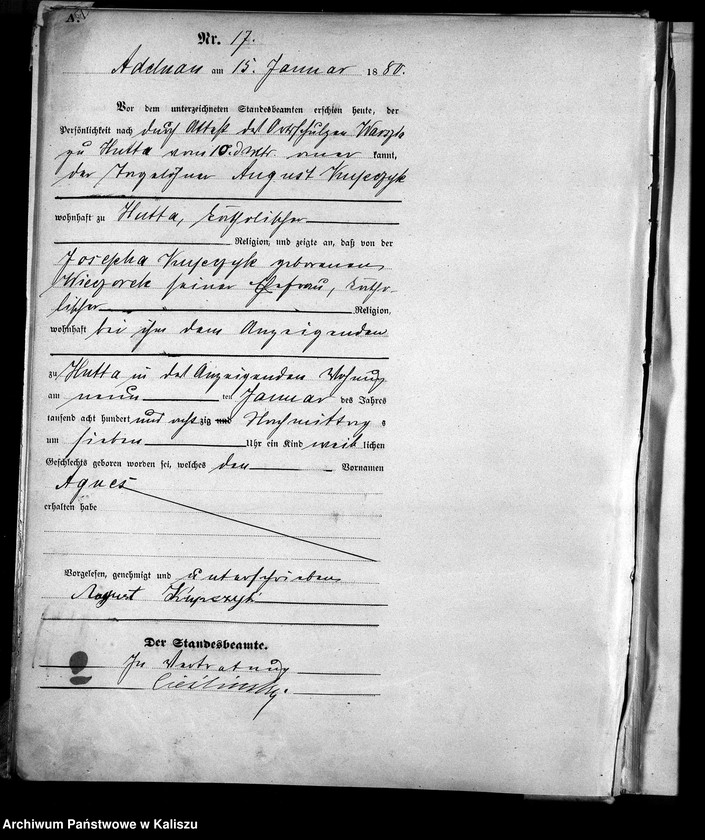 A.
Nr. 17.
Adelnau am 15. Januar 1880.
Vor dem unterzeichneten Standesbeamten erschien heute, der
Persönlichkeit nach durch Attest des Ortsschulzen
zu Hutta vom 10. d. Mts. aner kannt,
der Tagelöhner August Kupczyk
wohnhaft zu Hutta, katholischer
Religion, und zeigte an, daß von der
Josepha Kupczyk geborenen
Wieczorek seiner Ehefrau, katho-
lischer Religion,
wohnhaft bei ihm dem Anzeigenden
zu Hutta in des Anzeigenden Wohnung
am neun ten Januar des Jahres
tausend acht hundert und acht zig und Nachmittags
um sieben Uhr ein Kind weib lichen
Geschlechts geboren worden sei, welches den Vornamen
Agnes
erhalten habe
Vorgelesen, genehmigt und unterschrieben
August Kupczyk
Der Standesbeamte.
In Vertretung
Archiwum Państwowe w Kaliszu